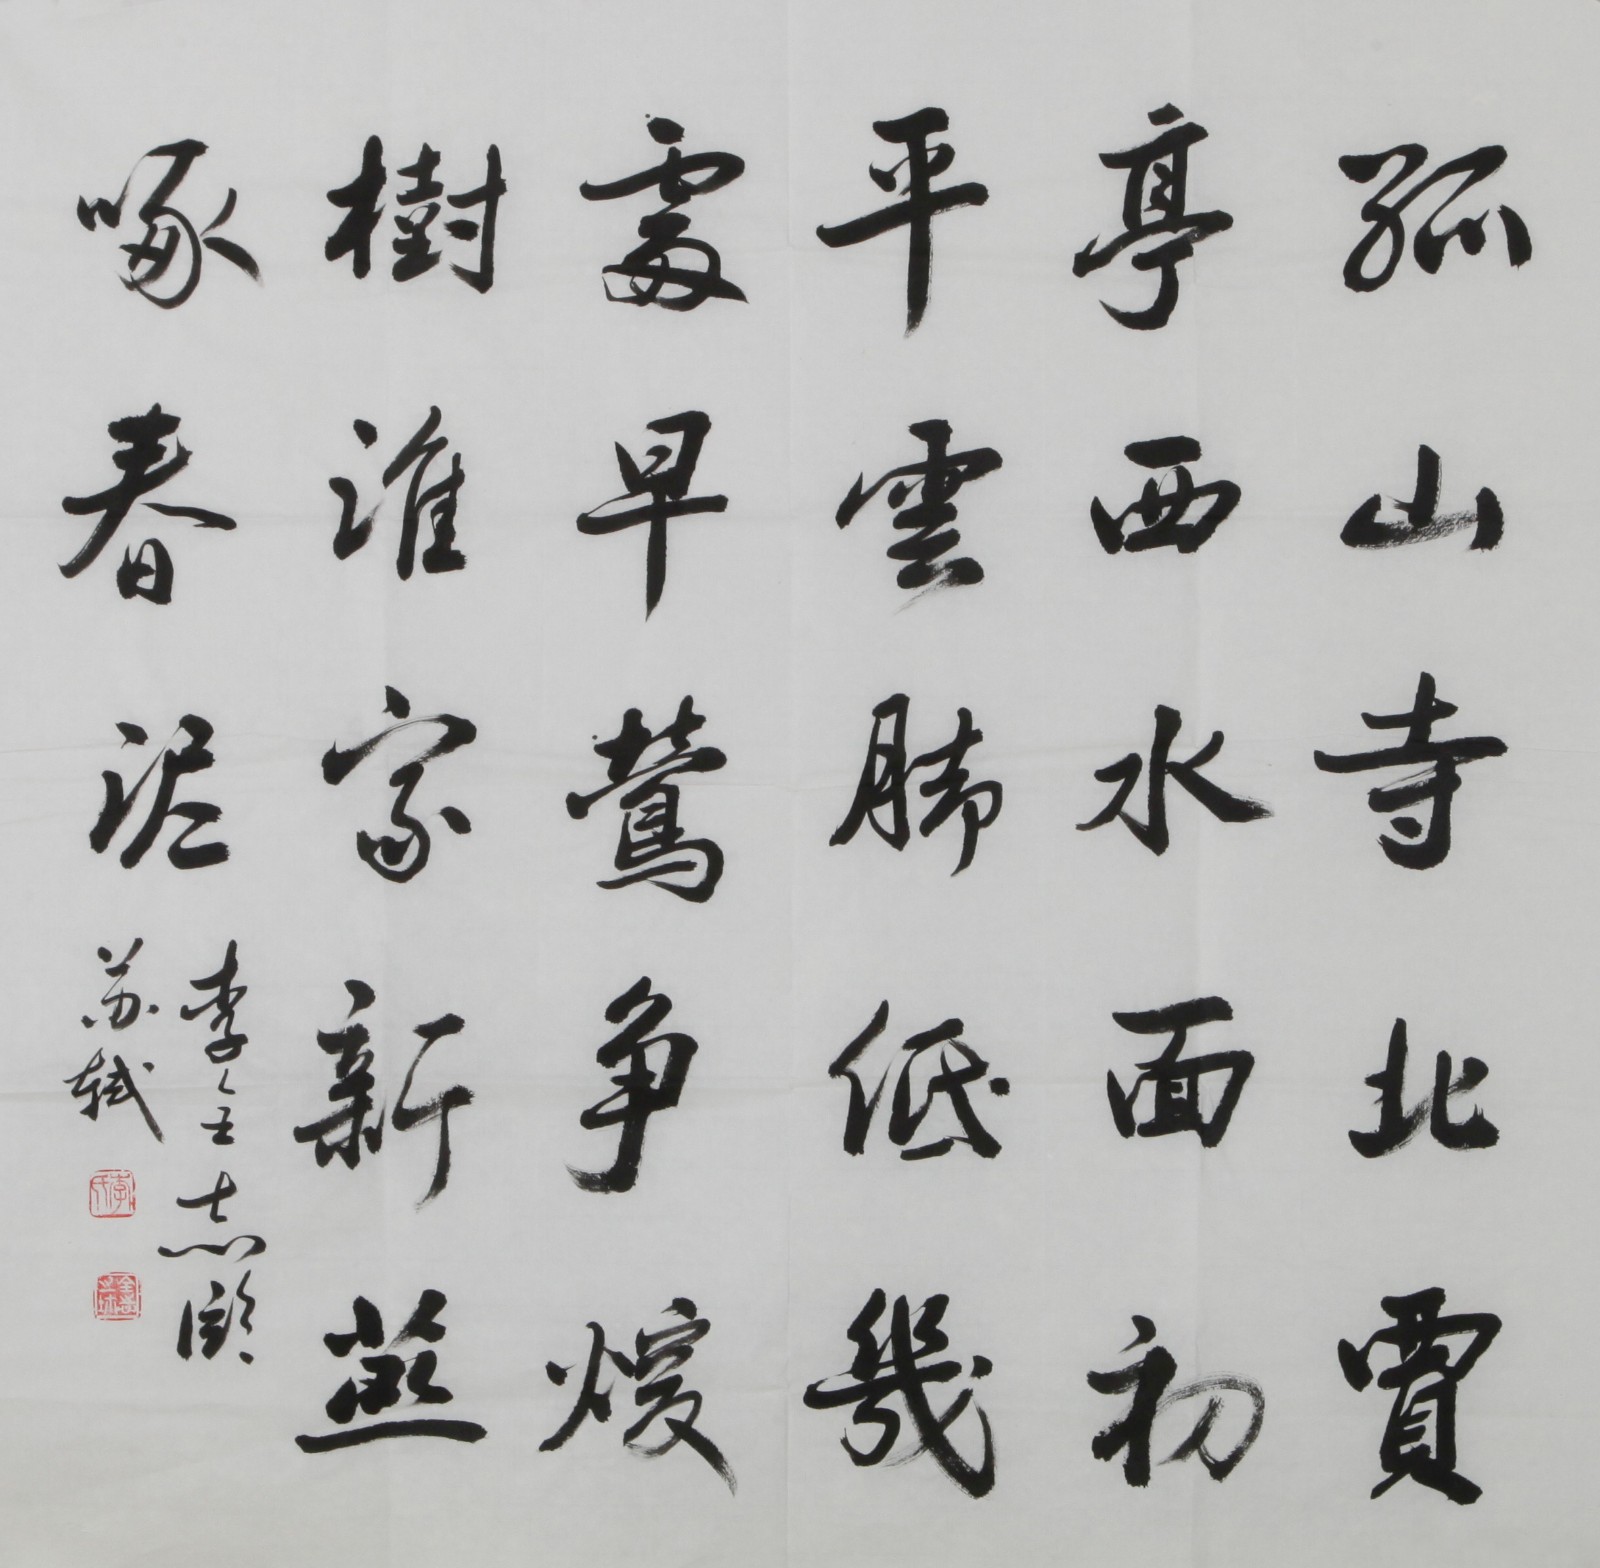 孤山寺北賈
亭西水面初
平雲脚低幾
處早鶯争暖
樹誰家新燕
啄春泥
李志
苏轼
李氏